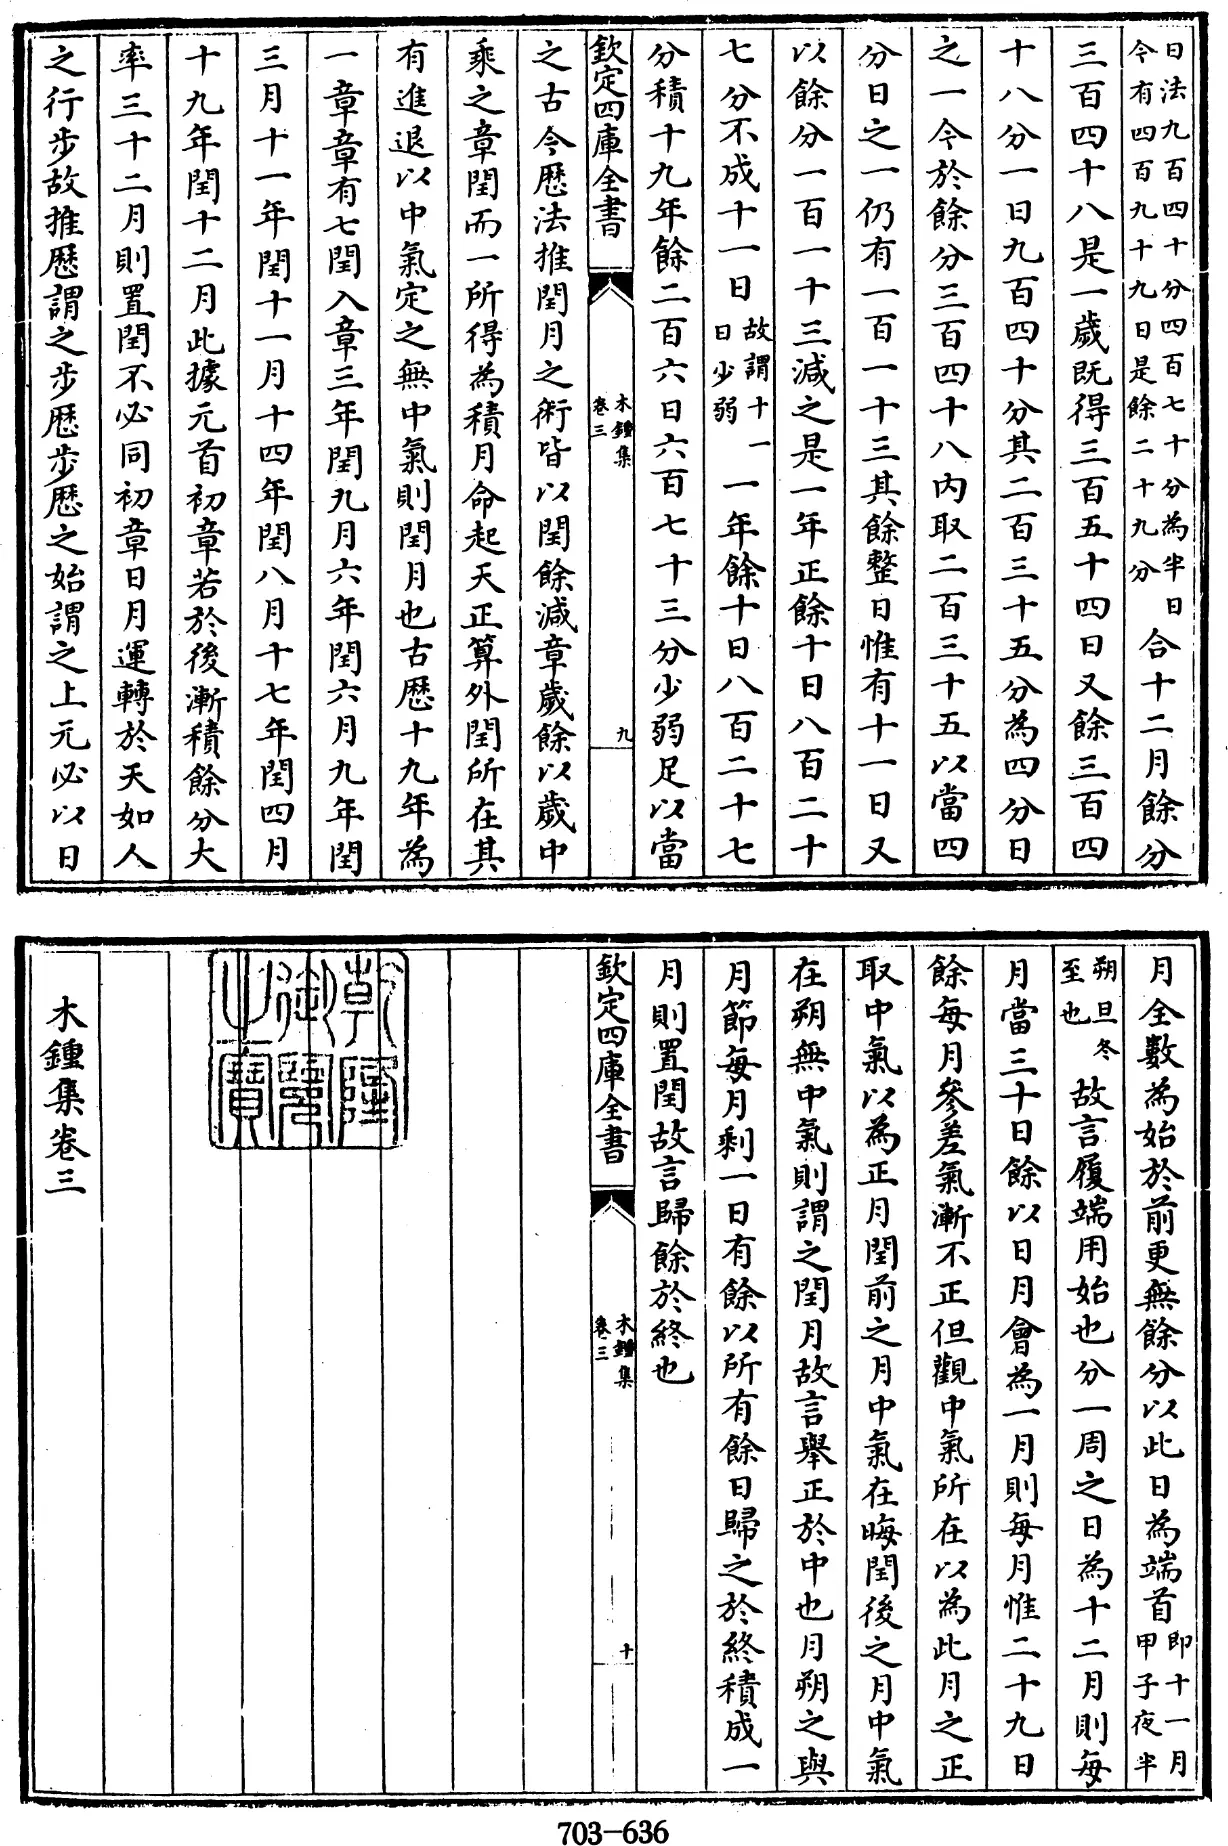 日法九百四十分四百七十分為半日
今有四百九十九日是餘二十九分
合十二月餘分
三百四十八是一歲既得三百五十四日又餘三百四
十八分一日九百四十分其二百三十五分為四分日
之一今於餘分三百四十八內取二百三十五以當四
分日之一仍有一百一十三其餘整日惟有十一日又
以餘分一百一十三減之是一年正餘十日八百二十
七分不成十一日
故謂十一
日少弱
一年餘十日八百二十七
分積十九年餘二百六日六百七十三分少弱足以當
欽定四庫全書
木鍾集
卷三
九
之古今歷法推閏月之術皆以閏餘減章歲餘以歲中
乘之章閏而一所得為積月命起天正算外閏所在其
有進退以中氣定之無中氣則閏月也古歷十九年為
一章章有七閏入章三年閏九月六年閏六月九年閏
三月十一年閏十一月十四年閏八月十七年閏四月
十九年閏十二月此據元首初章若於後漸積餘分大
率三十二月則置閏不必同初章日月運轉於天如人
之行步故推歷謂之步歷步歷之始謂之上元必以日
月全數為始於前更無餘分以此日為端首
即十一月
甲子夜半
朔旦冬
至也
故言履端用始也分一周之日為十二月則每
月當三十日餘以日月會為一月則每月惟二十九日
餘每月參差氣漸不正但觀中氣所在以為此月之正
取中氣以為正月閏前之月中氣在晦閏後之月中氣
在朔無中氣則謂之閏月故言舉正於中也月朔之與
月節每月剩一日有餘以所有餘日歸之於終積成一
月則置閏故言歸餘於終也
欽定四庫全書
木鍾集
卷三
十
乾隆
御覽
之寶
木鍾集卷三
703-636